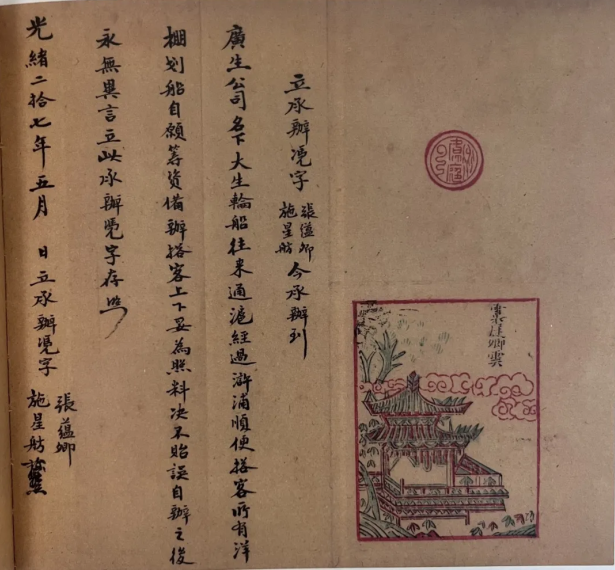 立承辦凴字 張蘊卿 施星舫 今承辦到
廣生公司名下大生輪船往来通滬經過滸浦順便搭客所有洋
棚划船自願籌資備辦搭客上下妥為照料决不貽誤自辦之後
永無異言立此承辦凴字存照
光緒二拾七年五月 日立承辦凴字 張蘊卿 施星舫